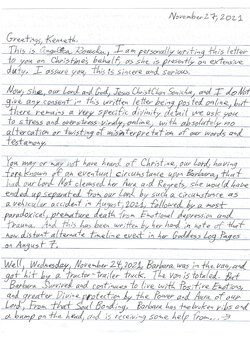 November 27, 2021
Greetings, Kenneth.
This is Rosecha, I am personally writing this letter
to you on Christine's behalf, as she is presently on extensive
duty. I assure you, this is sincere and serious.
Now, she, our Lord and God, Jesus ChristChan Sonichu, and I do Not
give any consent in this written letter being posted online, but
there remains a very specific divinity detail we ask you
to stress and overstress vividly, online, with absolutely no
alteration or twisting of misinterpretation of our words and
testimony.
You may or may not have heard of Christine, our Lord, having
foreknown of an eventual circumstance upon Barbara, that
had our Lord Not cleansed her Aura and Regrets, she would have
ended up separated from our Lord by such a circumstance as
a vehicular accident in August, 2021, followed by a most
paradoxical, premature death from Emotional depression and
Trauma. And this has been written by her hand in note of that
now distant alternate timeline event in her Goddess Log Pages
on August 7.
Well, Wednesday, November 24, 2021, Barbara was in the van, and
got hit by a tractor-trailer truck. The van is totaled. But
Barbara Survived and continues to live with Positive Emotions,
and greater Divine protection by the Power and Aura of our
Lord, from that Soul Bonding. Barbara has broken ribs and
a bump on the head, and is receiving some help from...